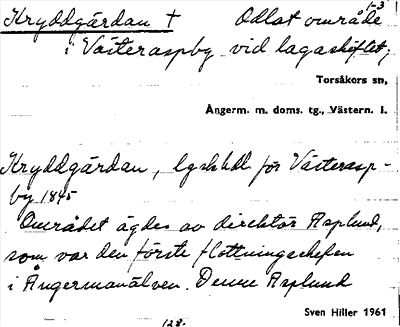 Kryddgårdan † Odlat område 1-3
i Västeraspby vid lagaskiftet;
Torsåkers sn,
Ångerm. m. doms. tg., Västern. l.
Kryddgårdan, lgskhdl för Västerasp-
by 1845
Området ägdes av direktör Asplund,
som var den förste flottningschefen
i Ångermanälven. Denne Asplund
Sven Hiller 1961
128.